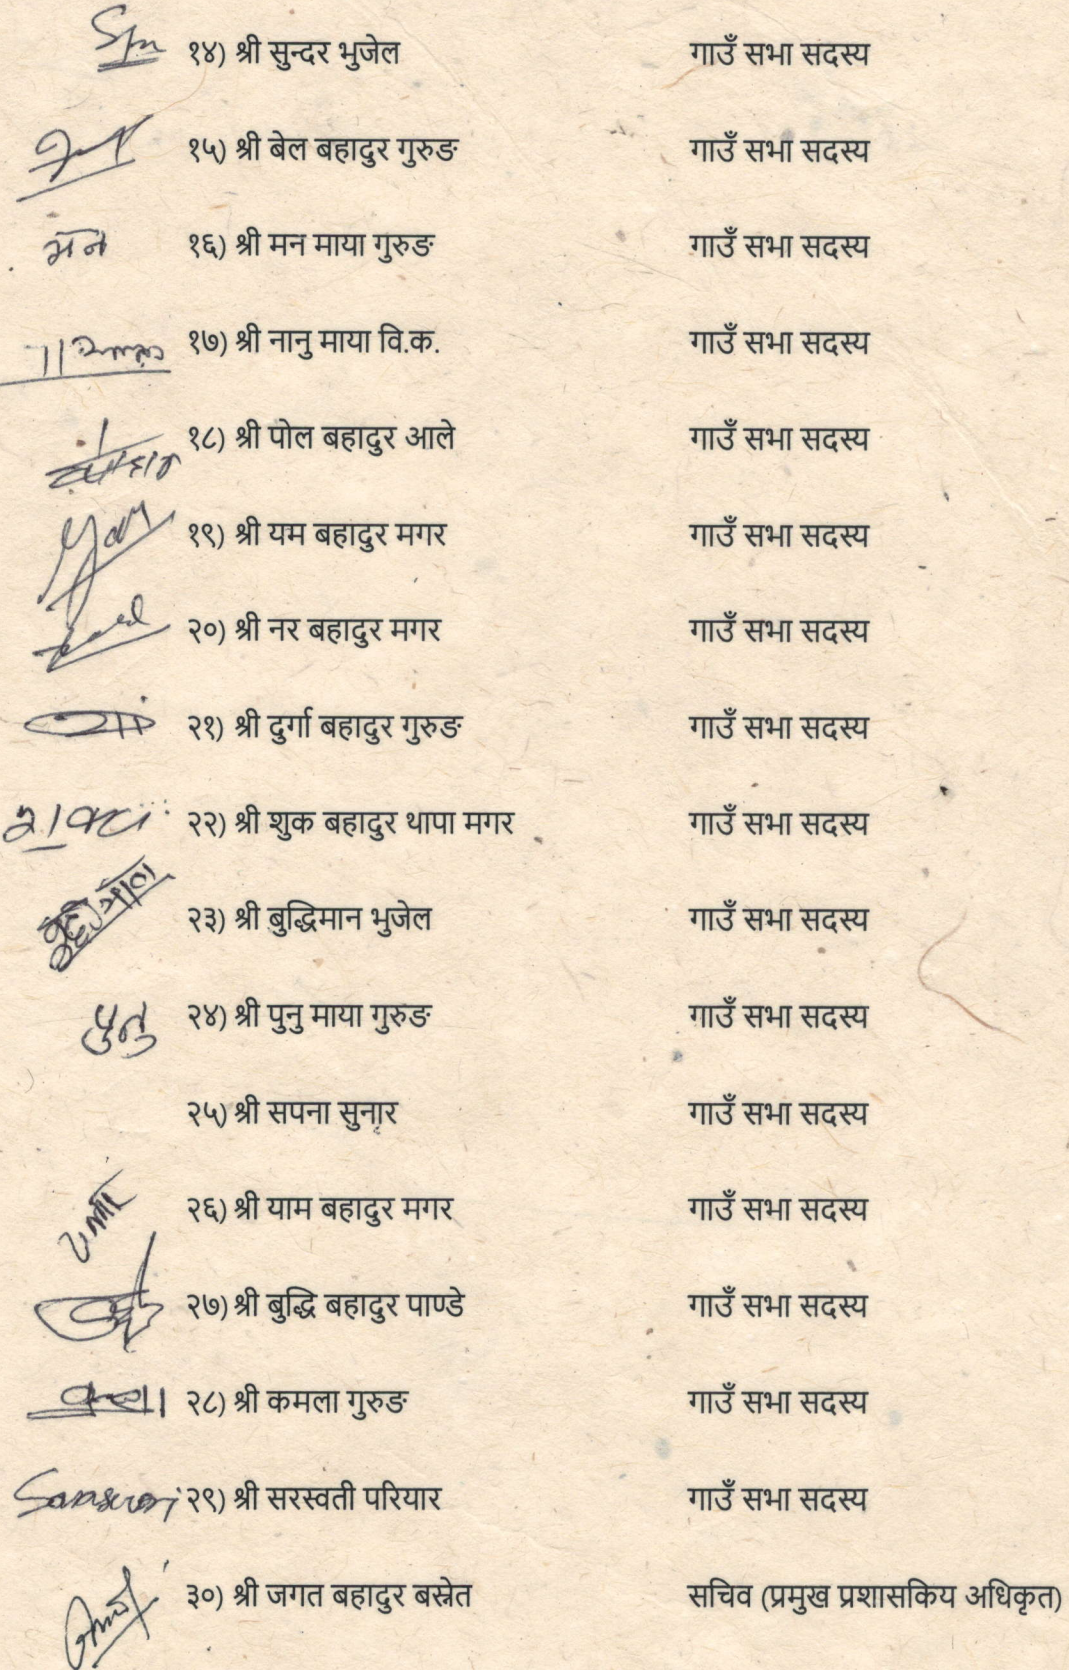 १४) श्री सुन्दर भुजेल गाउँ सभा सदस्य
१५) श्री बेल बहादुर गुरुङ गाउँ सभा सदस्य
मन १६) श्री मन माया गुरुङ गाउँ सभा सदस्य
१७) श्री नानु माया वि.क. गाउँ सभा सदस्य
१८) श्री पोल बहादुर आले गाउँ सभा सदस्य
१९) श्री यम बहादुर मगर गाउँ सभा सदस्य
२०) श्री नर बहादुर मगर गाउँ सभा सदस्य
२१) श्री दुर्गा बहादुर गुरुङ गाउँ सभा सदस्य
२२) श्री शुक बहादुर थापा मगर गाउँ सभा सदस्य
२३) श्री बुद्धिमान भुजेल गाउँ सभा सदस्य
पुनु २४) श्री पुनु माया गुरुङ गाउँ सभा सदस्य
२५) श्री सपना सुनार गाउँ सभा सदस्य
२६) श्री याम बहादुर मगर गाउँ सभा सदस्य
२७) श्री बुद्धि बहादुर पाण्डे गाउँ सभा सदस्य
२८) श्री कमला गुरुङ गाउँ सभा सदस्य
२९) श्री सरस्वती परियार गाउँ सभा सदस्य
३०) श्री जगत बहादुर बस्नेत सचिव (प्रमुख प्रशासकिय अधिकृत)